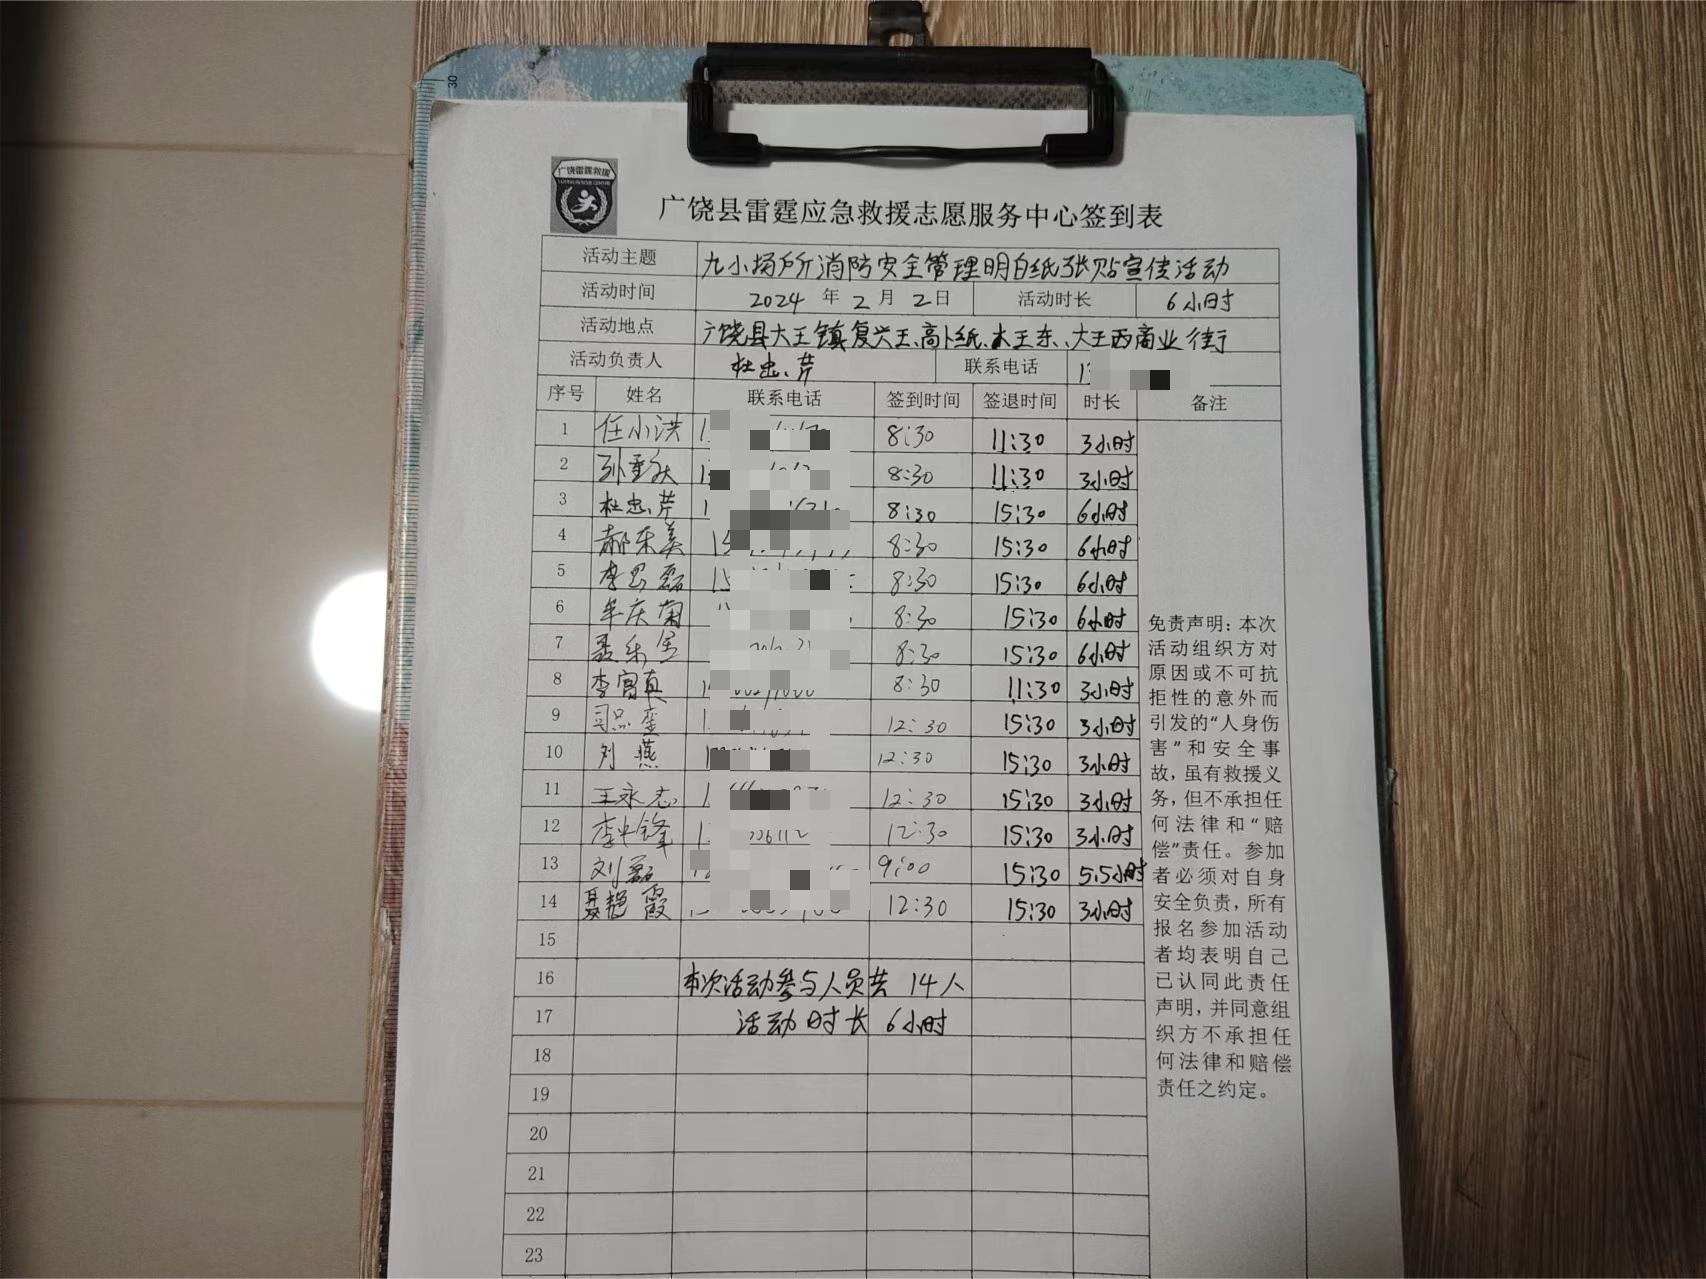 30
广饶雷霆救援
广饶县雷霆应急救援志愿服务中心签到表
活动主题 九小场所消防安全管理明白纸张贴宣传活动
活动时间 2024 年 2 月 2 日 活动时长 6小时
活动地点 广饶县大王镇复兴王、高卜纸、大王东、大王西商业街
活动负责人 杜忠芹 联系电话 1
序号 姓名 联系电话 签到时间 签退时间 时长 备注
1 任小洪 1 8:30 11:30 3小时
2 孙重 1 8:30 11:30 3小时
3 杜忠芹 1 8:30 15:30 6小时
4 郝东美 15 8:30 15:30 6小时
5 李思磊 15 8:30 15:30 6小时
6 牟庆菊 8:30 15:30 6小时
7 聂乐 8:30 15:30 6小时
8 李富真 1 8:30 11:30 3小时
9 司品奎 1 12:30 15:30 3小时
10 刘燕 1 12:30 15:30 3小时
11 王永志 1 12:30 15:30 3小时
12 李中锋 1 12:30 15:30 3小时
13 刘磊 9:00 15:30 5.5小时
14 聂艳霞 12:30 15:30 3小时
15
16 本次活动参与人员共 14人
17 活动时长 6小时
18
19
20
21
22
23
免责声明：本次
活动组织方对
原因或不可抗
拒性的意外而
引发的“人身伤
害”和安全事
故，虽有救援义
务，但不承担任
何法律和“赔
偿”责任。参加
者必须对自身
安全负责，所有
报名参加活动
者均表明自己
已认同此责任
声明，并同意组
织方不承担任
何法律和赔偿
责任之约定。